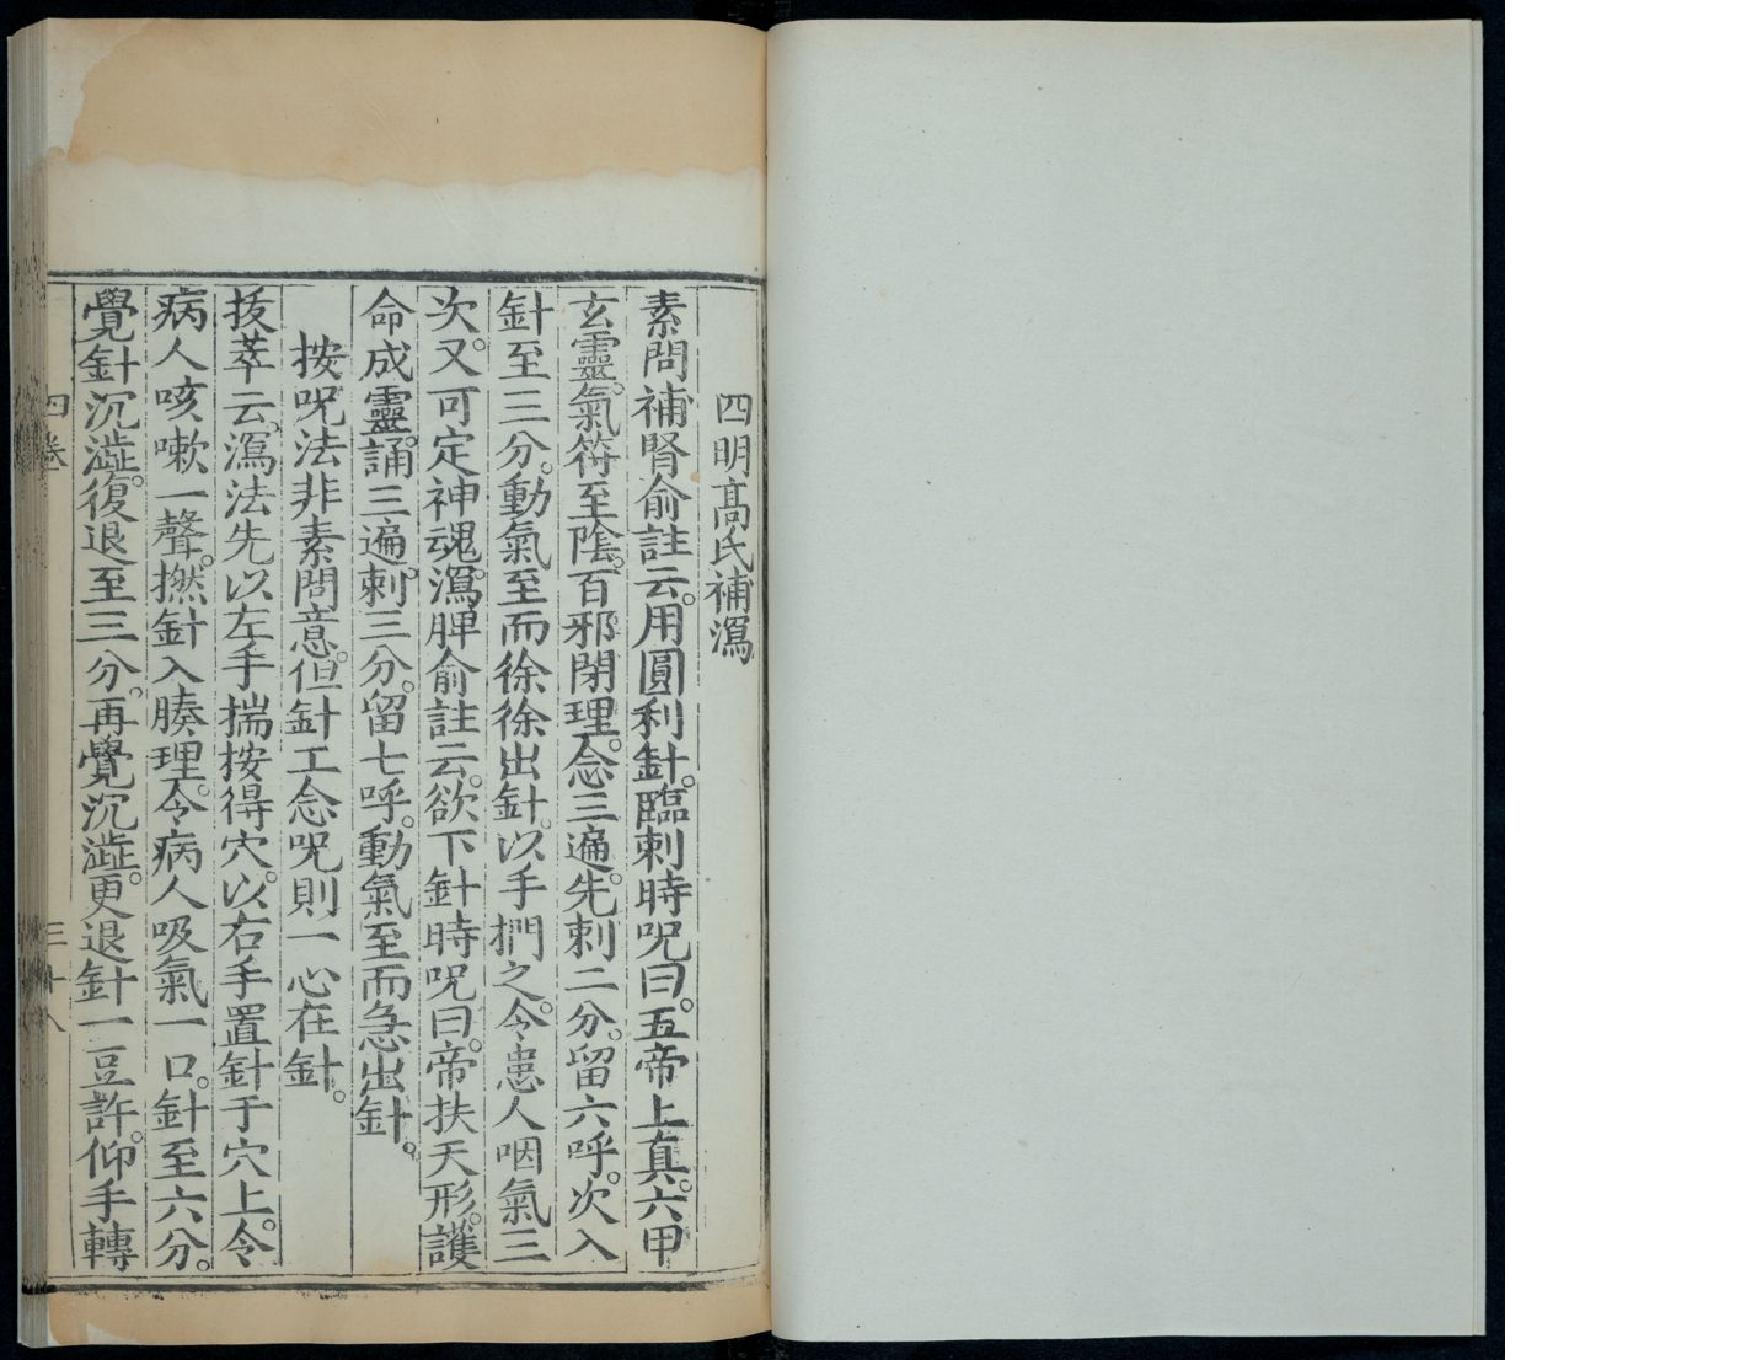 四明髙氏補瀉
素問補腎俞註云。用圓利針。臨刺時呪曰。五帝上真。六甲
玄靈。氣符至陰。百邪閉理。念三遍。先刺二分。留六呼。次入
針至三分。動氣至而徐徐出針。以手捫之。令患人咽氣三
次。又可定神魂。瀉脾俞註云。欲下針時呪曰。帝扶天形。護
命成靈。誦三遍。刺三分。留七呼。動氣至而急出針。
按呪法非素問意。但針工念呪則一心在針。
拔萃云。瀉法先以左手揣按得穴。以右手置針于穴上。令
病人咳嗽一聲。撚針入腠理。令病人吸氣一口。針至六分。
覺針沉澁。復退至三分。再覺沉澁。更退針一豆許。仰手轉
四卷 三十八